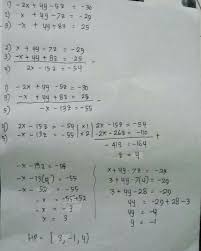 1) -2x + 4y - 5z = -30
2) x + 4y - 7z = -29
3) -x + 4y + 8z = 25
2) x + 4y - 7z = -29
3) -x + 4y + 8z = 25 -
4) 2x - 15z = -54
1) -2x + 4y - 5z = -30
3) -x + 4y + 8z = 25 -
5) -x - 13z = -55
4) 2x - 15z = -54 | x1 | 2x - 15z = -54
5) -x - 13z = -55 | x2 | -2x - 26z = -110 +
-41z = -164
z = 4
-x - 13z = -55
-x - 13(4) = -55
-x - 52 = -55
-x = -55 + 52
-x = -3
x = 3
x + 4y - 7z = -29
3 + 4y - 7(4) = -29
3 + 4y - 28 = -29
4y = -29 + 28 - 3
4y = -4
y = -1
HP = { 3, -1, 4 }